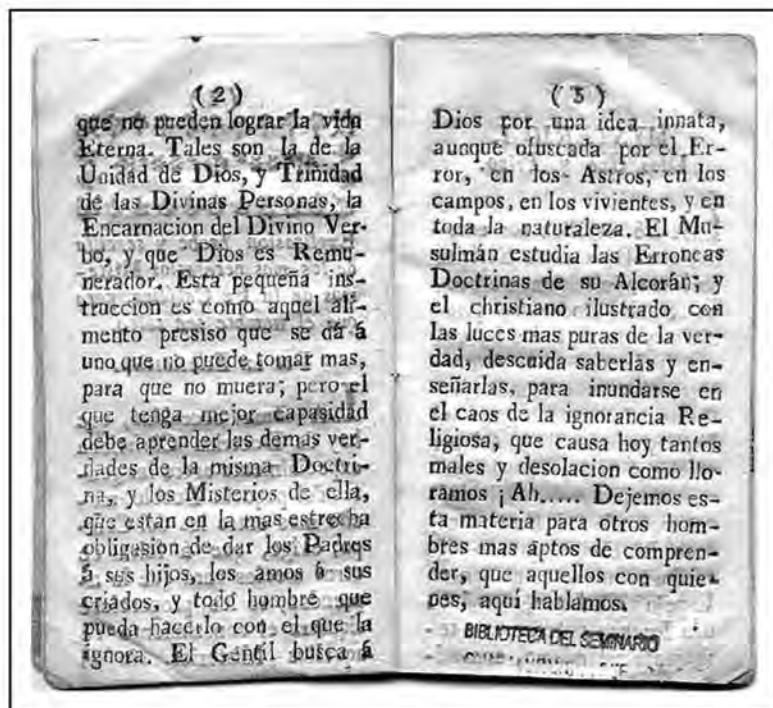 ( 2 )
que no pueden lograr la vida
Eterna. Tales son la de la
Unidad de Dios, y Trinidad
de las Divinas Personas, la
Encarnacion del Divino Ver-
bo, y que Dios es Remu-
nerador. Esta pequeña ins-
truccion es como aquel ali-
mento presiso que se dá á
uno que no puede tomar mas,
para que no muera; pero el
que tenga mejor capasidad
debe aprender las demas ver-
dades de la misma Doctri-
na, y los Misterios de ella,
que estan en la mas estrecha
obligasion de dar los Padres
á sus hijos, los amos á sus
criados, y todo hombre que
pueda hacerlo con el que la
ignora. El Gentil busca á
( 3 )
Dios por una idea innata,
aunque ofuscada por el Er-
ror, en los Astros, en los
campos, en los vivientes, y en
toda la naturaleza. El Mu-
sulmán estudia las Erroneas
Doctrinas de su Alcorán; y
el christiano ilustrado con
las luces mas puras de la ver-
dad, descuida saberlas y en-
señarlas, para inundarse en
el caos de la ignorancia Re-
ligiosa, que causa hoy tantos
males y desolacion como llo-
ramos ¡ Ah..... Dejemos es-
ta materia para otros hom-
bres mas aptos de compren-
der, que aquellos con quie-
nes, aquí hablamos.
BIBLIOTECA DEL SEMINARIO